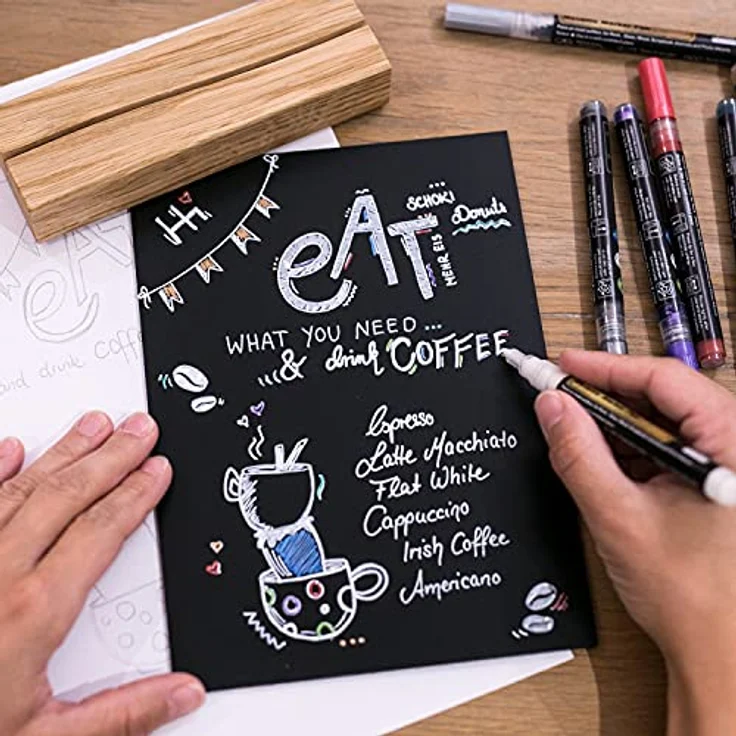 Hi
eAT
SCHOKI
Donuts
MEHR EIS
WHAT YOU NEED ...
& drink COFFEE
Espresso
Latte Macchiato
Flat White
Cappuccino
Irish Coffee
Americano
eA
and drink coff